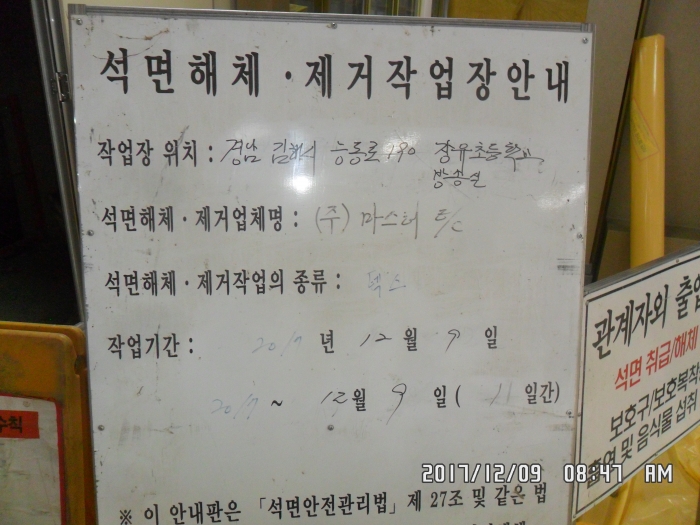 석면해체 · 제거작업장안내
작업장 위치 : 경남 김해시 능동로 190 장유초등학교
석면해체 · 제거업체명 : (주) 마스터 E/C
석면해체 · 제거작업의 종류 : 텍스
작업기간 : 2017 년 12 월 9 일
2017 ~ 12월 9 일 ( 11 일간)
※ 이 안내판은 「석면안전관리법」 제 27조 및 같은 법
관계자외 출입
석면 취급/해체
보호구/보호복착
흡연 및 음식물 섭취
수칙
2017/12/09 08:47 AM